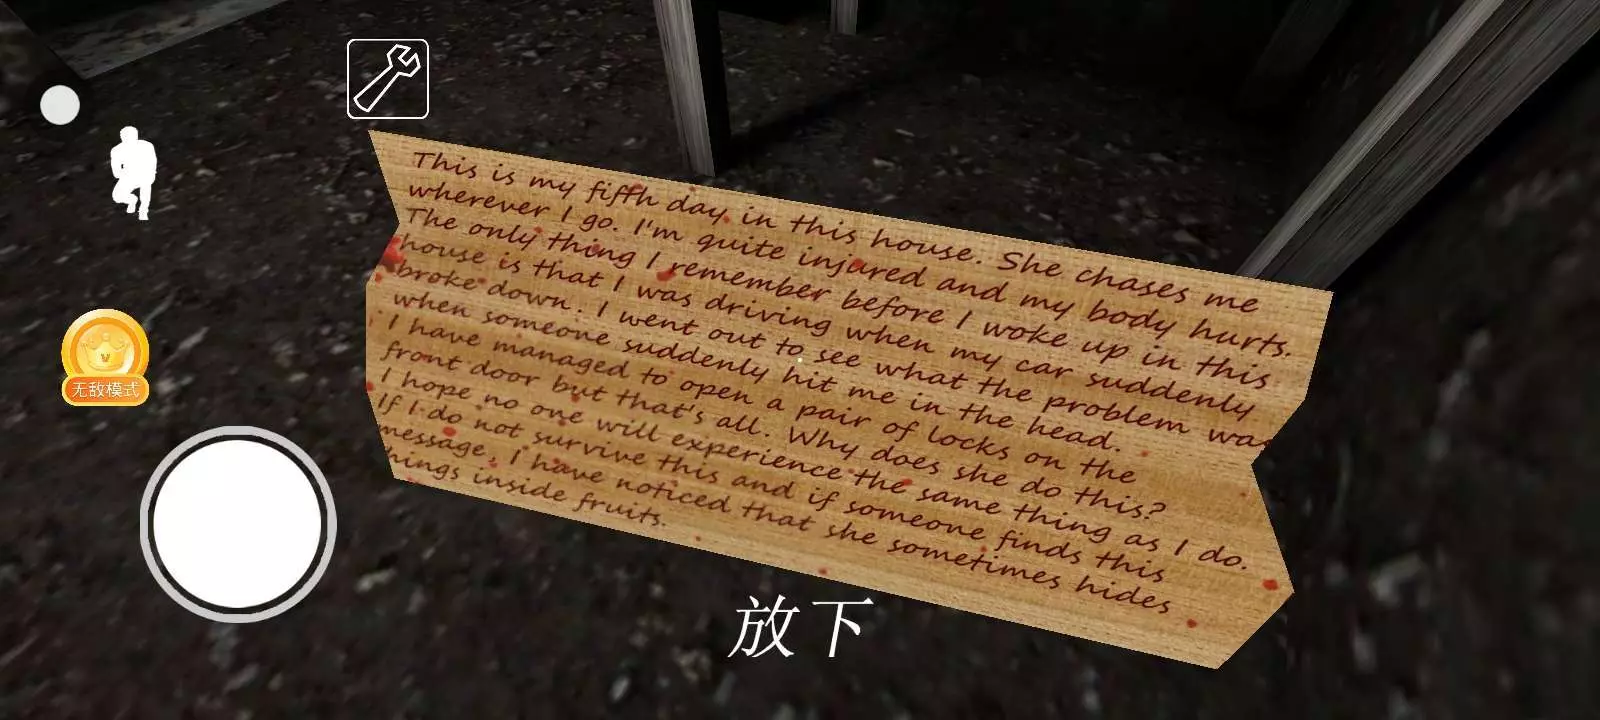 This is my fifth day in this house. She chases me
wherever I go. I'm quite injured and my body hurts.
The only thing I remember before I woke up in this
house is that I was driving when my car suddenly
broke down. I went out to see what the problem was
when someone suddenly hit me in the head.
I have managed to open a pair of locks on the
front door but that's all. Why does she do this?
I hope no one will experience the same thing as I do.
If I do not survive this and if someone finds this
message, I have noticed that she sometimes hides
hings inside fruits.
无敌模式
放下